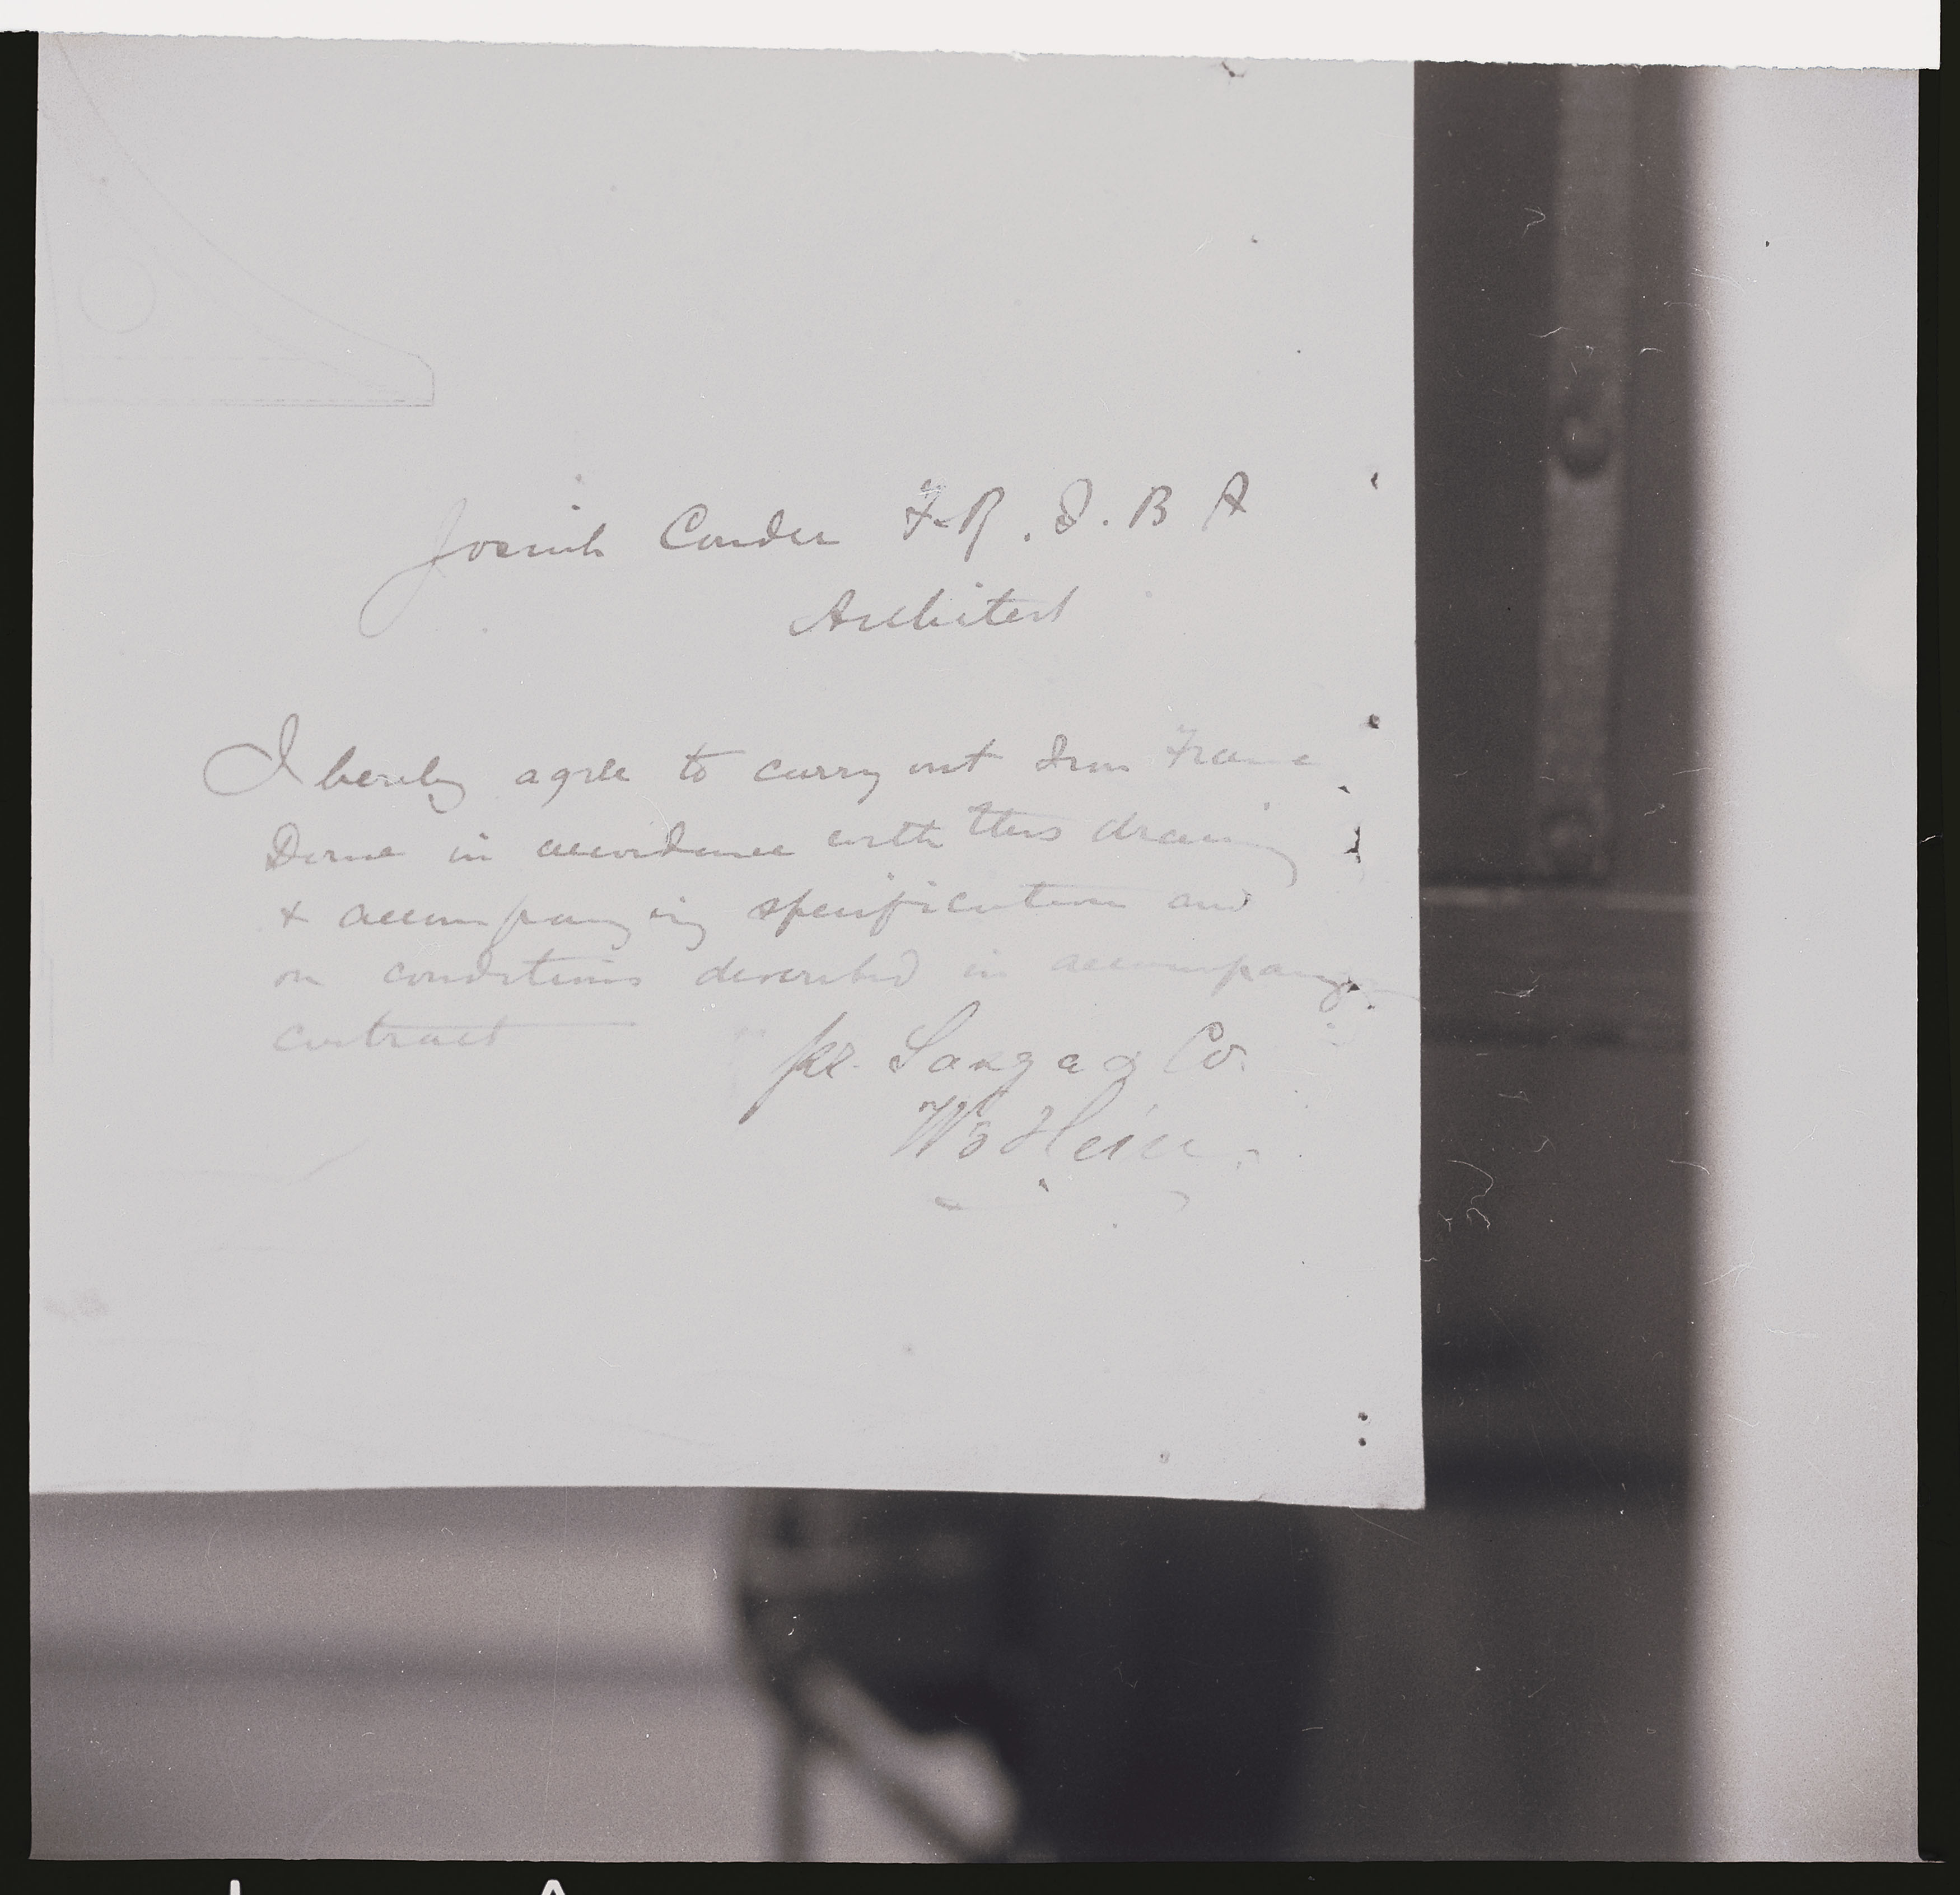 Josiah Conder F.R.I.B A
Architect
I hereby agree to carry out Iron Frame
Dome in accordance with this drawing
& accompanying specification and
on conditions described in accompanying
contract
pr. & Co.